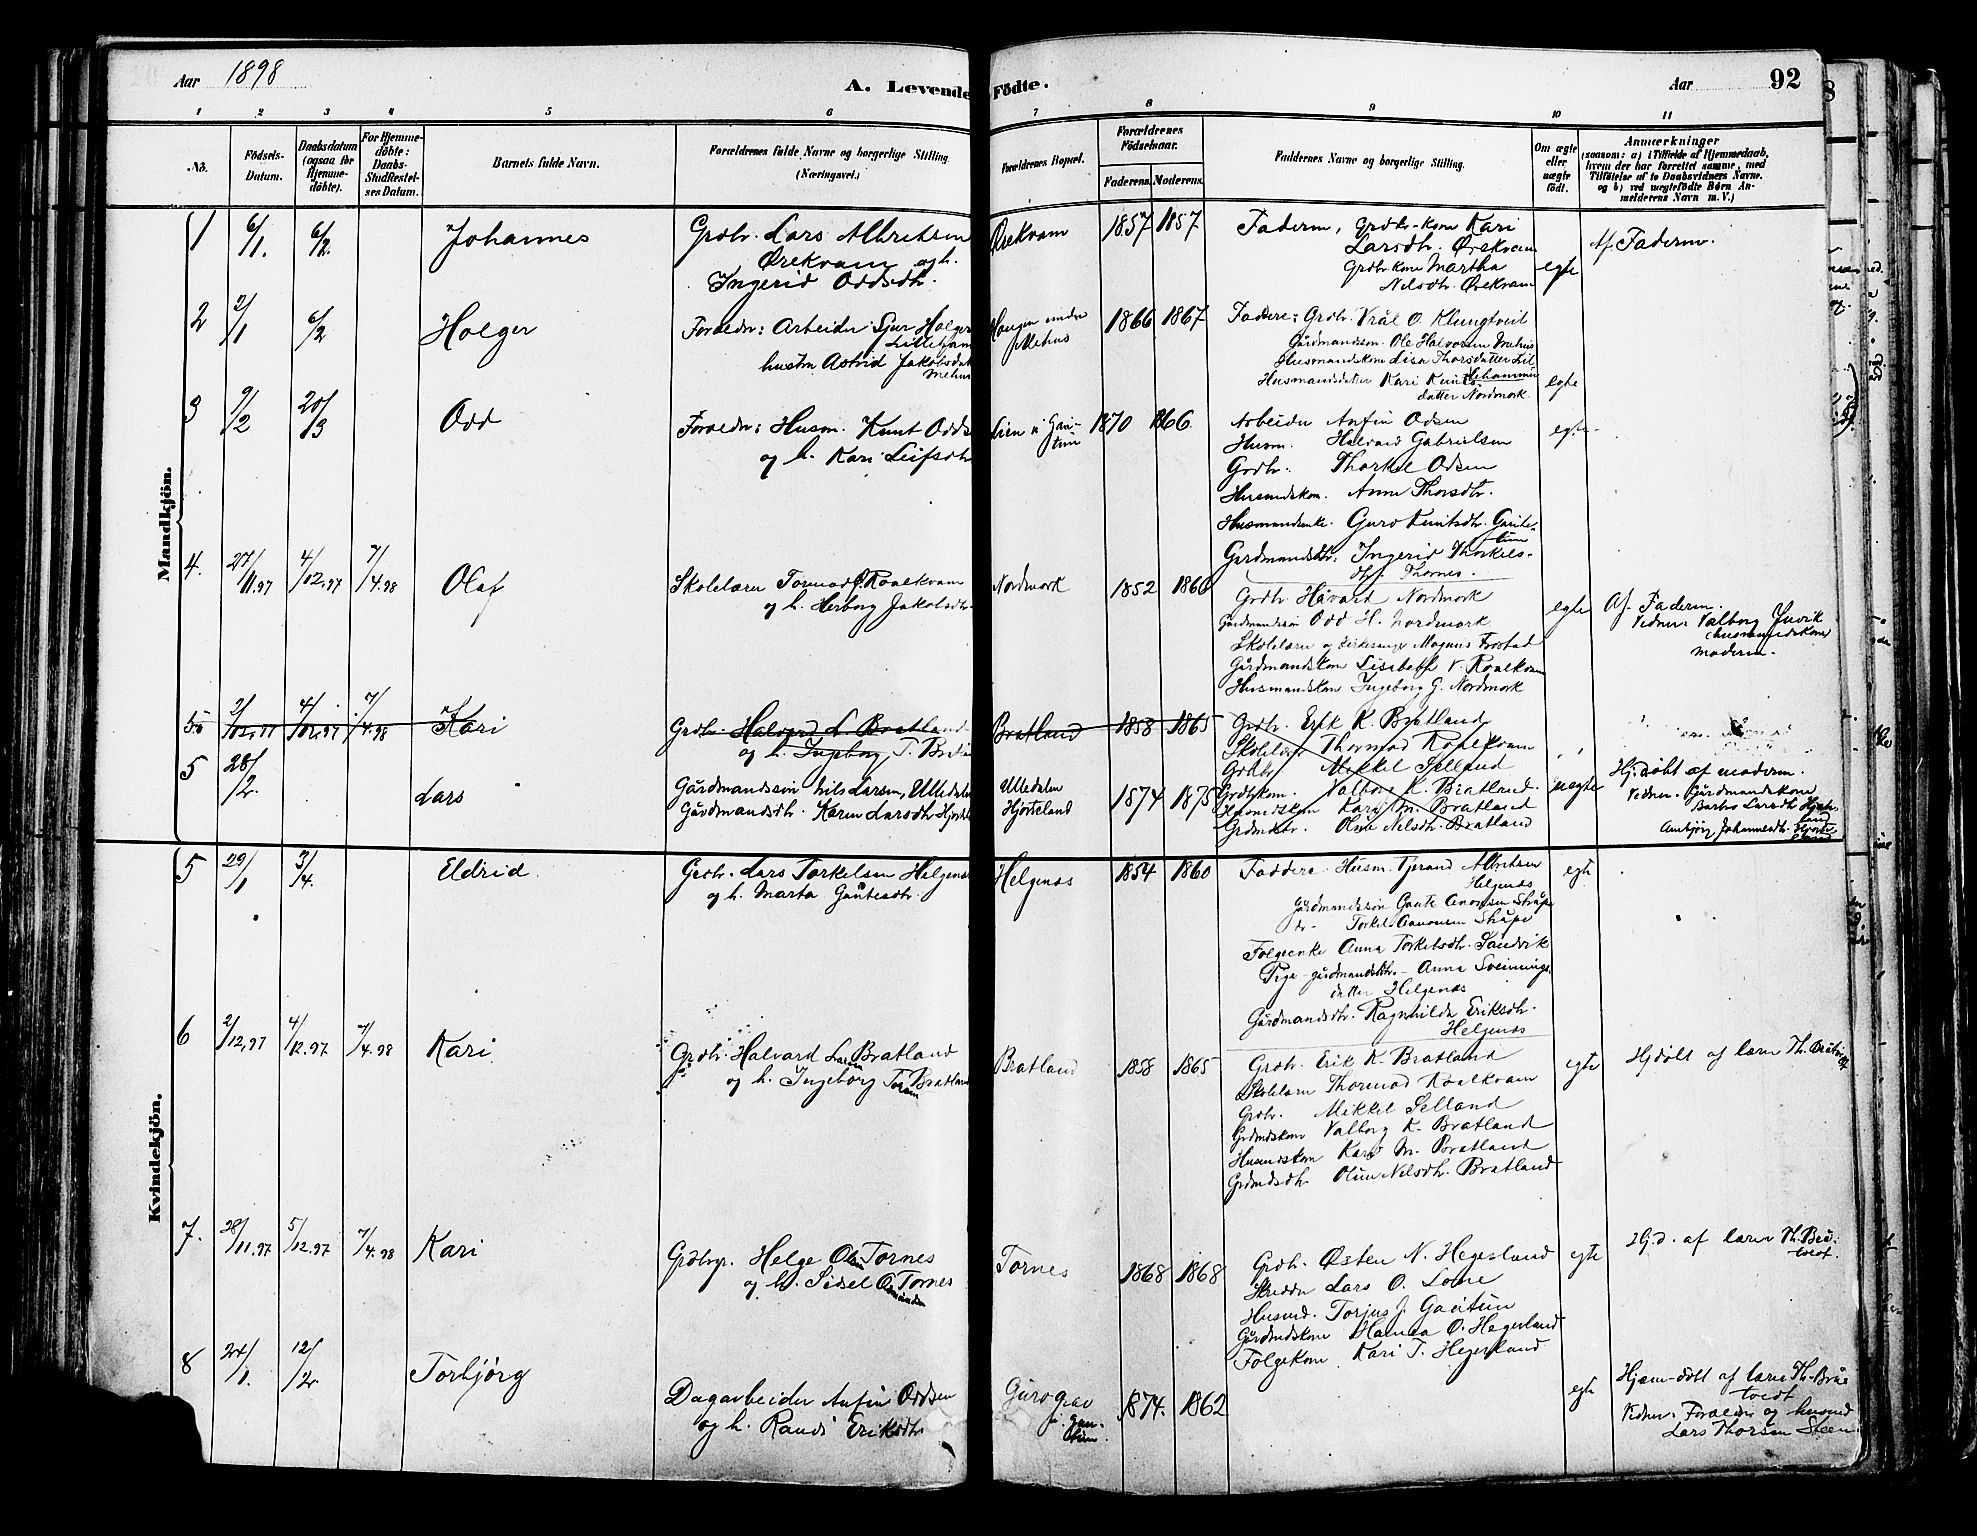 Aar 1898
A. Levende Födte.
Aar
92
1 2 3 4 5 6 7 8 9 10 11
No.
Födsels-Datum.
Daabsdatum (ogsaa for Hjemmedöbte).
For Hjemmedöbte: Daabs-Stadfæstelses Datum.
Barnets fulde Navn.
Forældrenes fulde Navne og borgerlige Stilling. (Næringsvei.)
Forældrenes Bopæl.
Forældrenes Födselsaar.
Faderens. Moderens.
Faddernes Navne og borgerlige Stilling.
Om ægte eller uægte födt.
Anmærkninger
(saasom: a) i Tilfælde af Hjemmedaab, hvem der har forrettet samme, med Tilföielse af to Daabsvidners Navne. og b) ved uægtefödte Börn Anmelderens Navn m. V.)
Mandkjön.
1 6/1. 6/2. Johannes
Grdbr. Lars Albretsen
Ørekvam og h.
Ingerid Oddsdtr.
Ørekvam 1857 1857
Faderen, Grdbr-kone Kari
Larsdtr. Ørekvam
Grdbr.kone Martha
Nilsdtr. Ørekvam
egte
Af Faderen.
2 2/1 6/2 Holger
Foreldr: Arbeider Sjur Holger
Lilleham
hustru Astrid Jakobsdat
Mehus
Haugen undre
Mehus
1866 1867
Faddere: Grdbr. Vrål O. Klungtveit
Gårdmandssøn. Ole Halvorsen Mehus
Husmandskone Lisa Thorsdatter Lil
lehammer
Husmandsdatter Kari Knuts
datter Nordmork
egte
3 9/2 20/3 Odd
Foreldr: Husm. Knut Odds
og h. Kari Leifsdtr
Lien u Gau-
tun
1870 1866
Arbeider Anfin Odsen
Husm. Halvard Gabrielsen
Grdbr. Thorkel Odsen
Husmdskon. Anne Thorsdtr.
Husmandsenke. Guro Knutsdtr. Gaute-
tun
Gardmandsdtr. Ingerid Thorkels-
dtr. Thornes.
egte
4. 27/11.97 4/12.97 7/4.98 Olaf
Skolelærer Tormod Roalkvam
og h. Herborg Jakobsdtr.
Nordmork 1852 1860
Grdbr Håvard Nordmork
Gårdmandssøn Odd H. Nordmork
Skolelærer og Kirkesanger Magnus Frostad
Gårdmandskone Lisabeth V. Roalkvam
Husmandskone Ingeborg G. Nordmork
egte
Af Faderen.
Vidner: Valborg Juvik
(husmandskone
Moderen.
5. 2/12.97 4/12.97 7/4.98 Kari
Grdbr. Halvard L Bratland
og h. Ingeborg T. Bratl
Bratland 1858 1865
Grdbr. Erik K. Bratland
Skolelærer Thormod Roalkvam
Grdbr Mikkel Selland
Grdbrkone. Valborg K. Bratland.
Husmdskone Kari M. Bratland
Grdmdsdtr. Oline Nilsdtr. Bratland
5 28/2. Lars
Gårdmandssøn Nils Larsen, Ulledalen
Gårdmandsdtr. Karen Larsdtr Hjortel
Ulledalen
Hjorteland
1874 1875
uegte
Hj.døbt af moderen.
Vidner. Gårdmandskone
Barbro Larsdtr Hjorte-
land
Ambjørg Johannesdtr. Hjorte
land
Kvindekjön.
5 29/1 3/4. Eldrid.
Grdbr. Lars Torkelsen Helgenæs
og h. Marta Gautesdtr.
Helgenæs 1854 1860
Faddere. Husm. Tjerand Albretsen
Helgenæs
Gårdmandssøn Gaute Aanonsen Stråpe
do- Torkel Aanonsen Stråpe
Folgeenke Anna Torkelsdtr. Sandvik
Pige-gårdmandsdtr.- Anna Sveinnings
datter Helgenæs
Gårdmandsdtr. Ragnhilda Eriksdtr.
Helgenæs
egte
6 2/12.97 4/12.97 7/4.98 Kari
Grdbr. Halvard Larsen Bratland
og h. Ingeborg Bratland
Bratland 1858 1865
Grdbr. Erik K. Bratland
Skolelærer Thormod Roalkvam
Grdbr. Mikkel Selland
Grdmdskone Valborg K. Bratland
Husmdskone Kari M. Bratland
Grdmdsdtr. Oline Nilsdtr. Bratland
egte
Hjdøbt af lærer Th. Bråtveit
7. 28/11.97 5/12.97 7/4.98 Kari
Grdbrgr. Helge Olsen Tornes
og h. Sidsel O. Tornes
Tornes 1868 1868
Grdbr. Østen N. Hegerland
Skrædder Lars O. Lone
Husmd. Torjus J. Gautun
Gårdmdskone Hanna O. Hegerland
Folgekone Kari T. Hegerland
egte
Hj.d. af lærer Th. Brå-
tveit.
8 24/1. 12/2. Torbjørg
Dagarbeider Anfin Oddsen
og h. Randi Eriksdtr.
Gurogjær
u. Gau-
tun.
1874. 1862
egte
Hjem-døbt af lærer Th. Brå
tveit
Vidner: Foreldr. og husmd
Lars Thorsen Steen